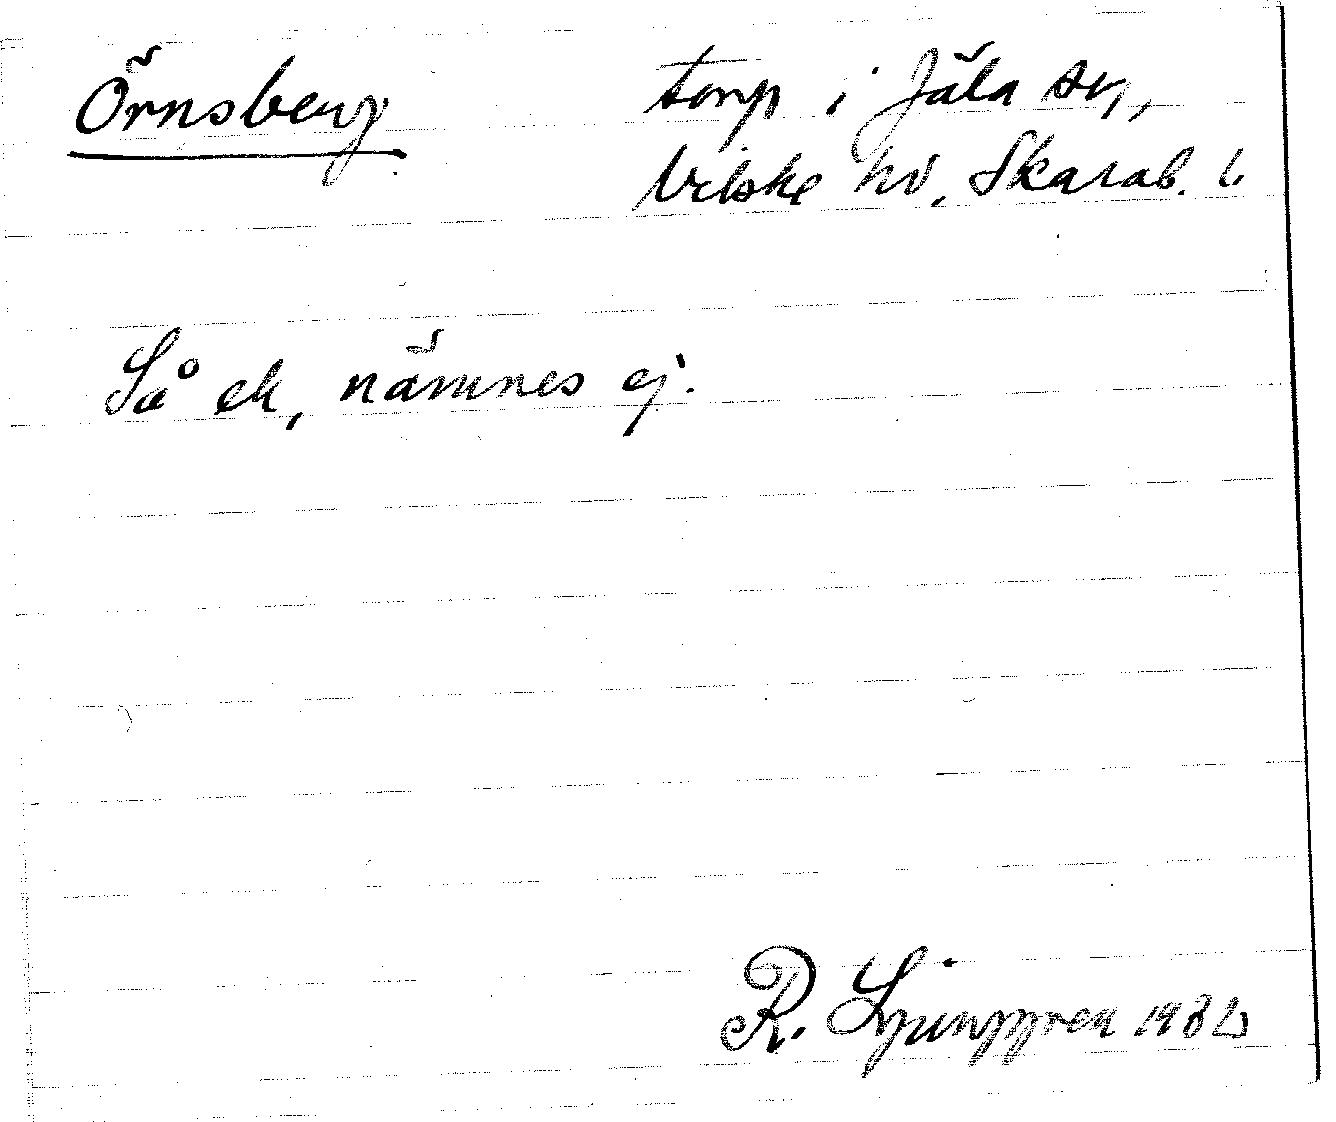 Örnsberg
torp i Jäla sn,
Vilske hd, Skarab. l.
Så ek, nämnes ej.
R. Ljunggren 1932